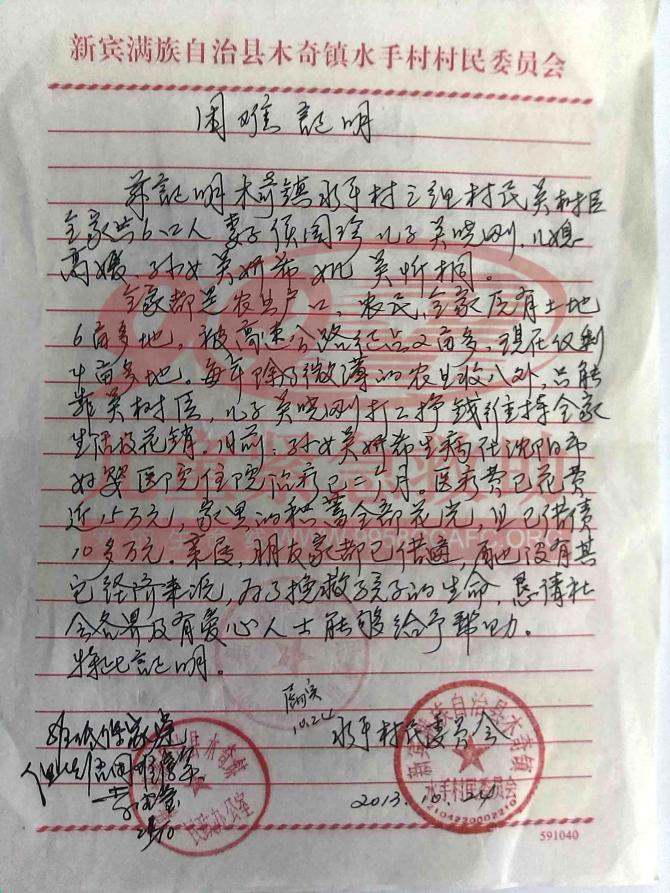 新宾满族自治县木奇镇水手村村民委员会
困难証明
兹証明木奇镇水手村三组村民吴树臣
全家共6口人 妻子 国珍 儿子吴晓刚. 儿媳
高媛. 孙女吴妍希 如 吴忻桐。
全家都是农业户口, 农民, 全家原有土地
6亩多地, 被高速公路征占2亩多, 现在仅剩
4亩多地。每年除了微薄的农业收入外, 只能
靠吴树臣, 儿子吴晓刚打工挣钱维持全家
生活及花销. 目前: 孙女吴妍希生病在沈阳市
妇婴医院住院治疗已二个月。医疗费已花费
近15万元, 家里的积蓄全部花完, 且已借债
10多万元. 亲戚, 朋友家都已借遍, 再也没有其
它经济来源, 为了挽救孩子的生命, 恳请社
会各界及有爱心人士能够给予帮助。
特此証明。
属实
10.24
水手村民委员会
2013.10.24
新宾满族自治县木奇镇
水手村民委员会
2104220002210
县木奇镇
民政办公室
宝宝紧急救助
591040